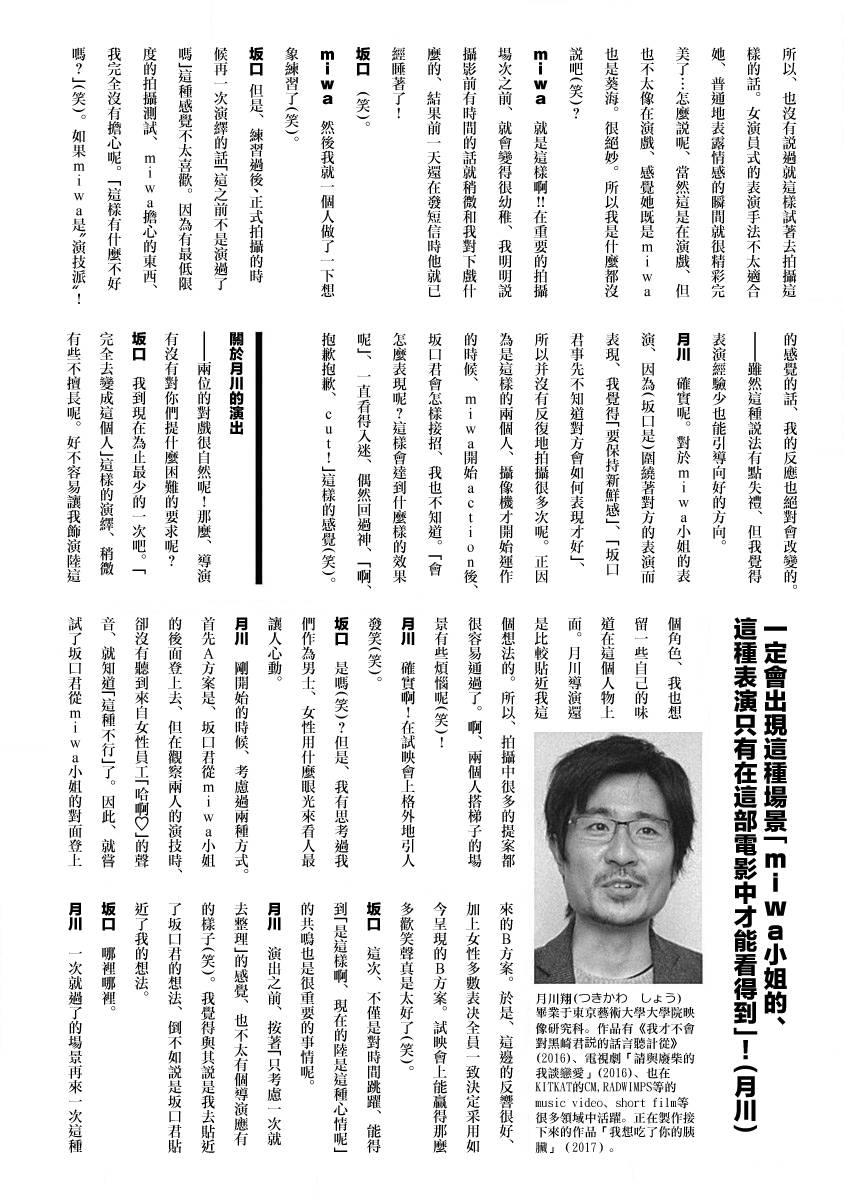 所以、也沒有説過就這樣試著去拍攝這
樣的話。女演員式的表演手法不太適合
她、普通地表露情感的瞬間就很精彩完
美了…怎麼説呢、當然這是在演戲、但
也不太像在演戲、感覺她既是miwa
也是葵海。很絕妙。所以我是什麼都沒
説吧(笑)?
miwa 就是這樣啊!!在重要的拍攝
場次之前、就會變得很幼稚、我明明説
攝影前有時間的話就稍微和我對下戲什
麼的、結果前一天還在發短信時他就已
經睡著了!
坂口 (笑)。
miwa 然後我就一個人做了一下想
象練習了(笑)。
坂口 但是、練習過後、正式拍攝的時
候再一次演繹的話「這之前不是演過了
嗎」這種感覺不太喜歡。因為有最低限
度的拍攝測試、miwa擔心的東西、
我完全沒有擔心呢。「這樣有什麼不好
嗎?」(笑)。如果miwa是〝演技派〟!
的感覺的話、我的反應也絕對會改變的。
——雖然這種説法有點失禮、但我覺得
表演經驗少也能引導向好的方向。
月川 確實呢。對於miwa小姐的表
演、因為(坂口是)圍繞著對方的表演而
表現、我覺得「要保持新鮮感」、「坂口
君事先不知道對方會如何表現才好」、
所以并沒有反復地拍攝很多次呢。正因
為是這樣的兩個人、攝像機才開始運作
的時候、miwa開始action後、
坂口君會怎樣接招、我也不知道。「會
怎麼表現呢?這樣會達到什麼樣的效果
呢」、一直看得入迷、偶然回過神、「啊、
抱歉抱歉、cut!」這樣的感覺(笑)。
關於月川的演出
——兩位的對戲很自然呢!那麼、導演
有沒有對你們提什麼困難的要求呢?
坂口 我到現在為止最少的一次吧。「
完全去變成這個人」這樣的演繹、稍微
有些不擅長呢。好不容易讓我飾演陸這
一定會出現這種場景「miwa小姐的、
這種表演只有在這部電影中才能看得到」!(月川)
個角色、我也想
留一些自己的味
道在這個人物上
面。月川導演還
是比較貼近我這
個想法的。所以、拍攝中很多的提案都
很容易通過了。啊、兩個人搭梯子的場
景有些煩惱呢(笑)!
月川 確實啊!在試映會上格外地引人
發笑(笑)。
坂口 是嗎(笑)?但是、我有思考過我
們作為男士、女性用什麼眼光來看人最
讓人心動。
月川 剛開始的時候、考慮過兩種方式。
首先A方案是、坂口君從miwa小姐
的後面登上去、但在觀察兩人的演技時、
卻沒有聽到來自女性員工「哈啊♡」的聲
音、就知道「這種不行」了。因此、就嘗
試了坂口君從miwa小姐的對面登上
月川翔(つきかわ しょう)
畢業于東京藝術大學大學院映
像研究科。作品有《我才不會
對黑崎君説的話言聽計從》
(2016)、電視劇「請與廢柴的
我談戀愛」(2016)、也在
KITKAT的CM,RADWIMPS等的
music video、short film等
很多領域中活躍。正在製作接
下來的作品「我想吃了你的胰
臟」（2017）。
來的B方案。於是、這邊的反響很好、
加上女性多數表决全員一致決定采用如
今呈現的B方案。試映會上能贏得那麼
多歡笑聲真是太好了(笑)。
坂口 這次、不僅是對時間跳躍、能得
到「是這樣啊、現在的陸是這種心情呢」
的共鳴也是很重要的事情呢。
月川 演出之前、按著「只考慮一次就
去整理」的感覺、也不太有個導演應有
的樣子(笑)。我覺得與其説是我去貼近
了坂口君的想法、倒不如説是坂口君貼
近了我的想法。
坂口 哪裡哪裡。
月川 一次就過了的場景再來一次這種